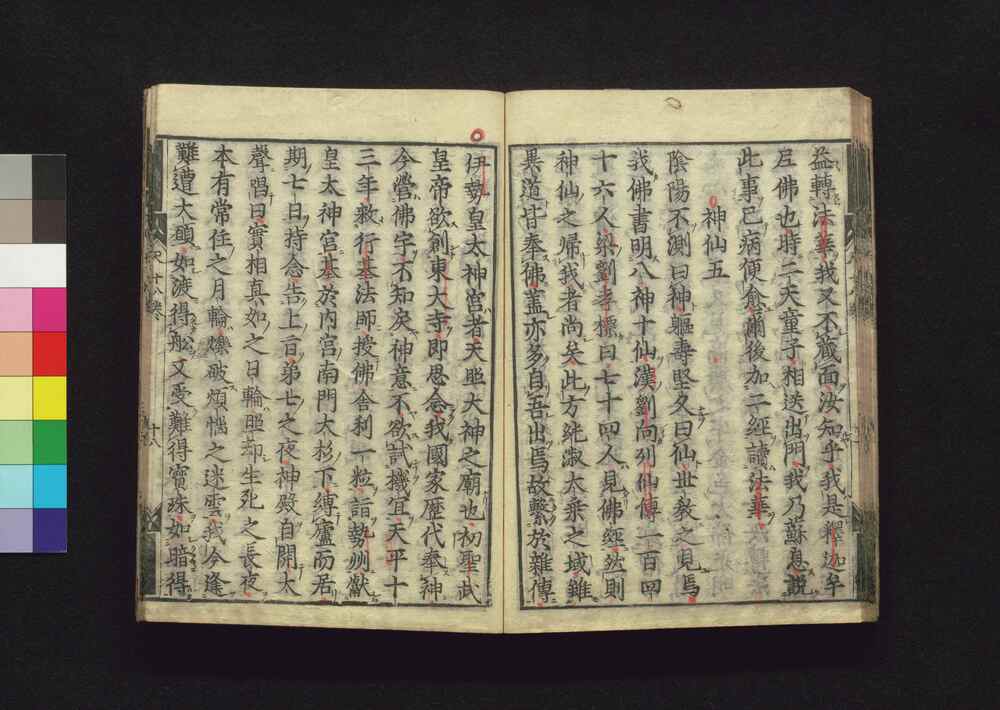 益轉法華我又不藏面汝知乎我是釋迦牟
尼佛也時二天童子相送出門我乃蘇息説
此事已病便愈爾後加二經讀法華
神仙五
陰陽不測曰神軀壽堅久曰仙世教之見焉
我佛書明八神十仙漢劉向列仙傳一百四
十六人梁劉孝標曰七十四人見佛經然則
神仙之歸我者尚矣此方純淑大乘之域雖
異道皆奉佛蓋亦多自吾出焉故繫於雜傳
伊勢皇太神宮者天照大神之廟也初聖武
皇帝欲創東大寺即思念我國家歷代奉神
今營佛宇不知戾神意不欲試機宜天平十
三年敕行基法師授佛舍利一粒詣勢州獻
皇太神宮基於內宮南門大杉下縛廬而居
期七日持念告上旨第七之夜神殿自開大
聲唱曰實相真如之日輪照却生死之長夜
本有常住之月輪爍破煩惱之迷雲我今逢
難遭大願如渡得舩又受難得寶珠如暗得
十八卷
十八